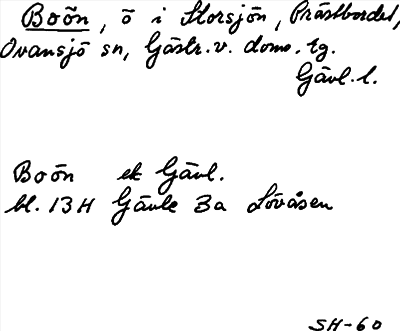 Boön, ö i Storsjön, Prästbordet,
Ovansjö sn, Gästr.v. doms. tg.
Gävl. l.
Boön ek Gävl.
bl. 13H Gävle 3a Lövåsen
SH-60